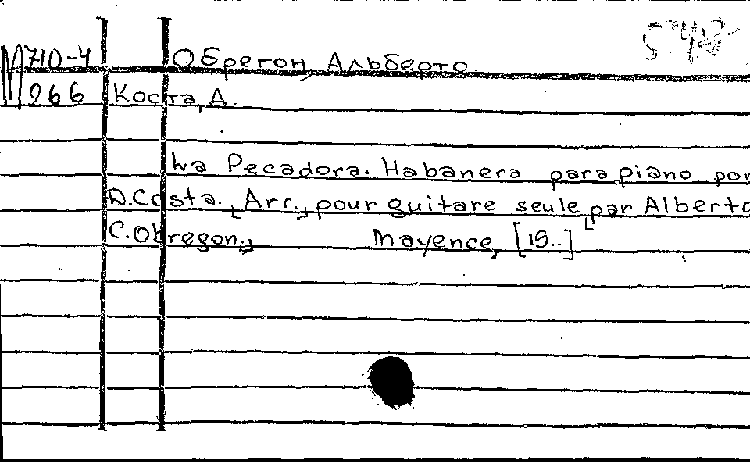 М 710-4 Обрегон, Альберто
266 Коста, Д.
La Pecadora. Habanera para piano por
D. Costa. Arr. pour guitare seule par Alberto
C. Obregon. Mayence, [19..]